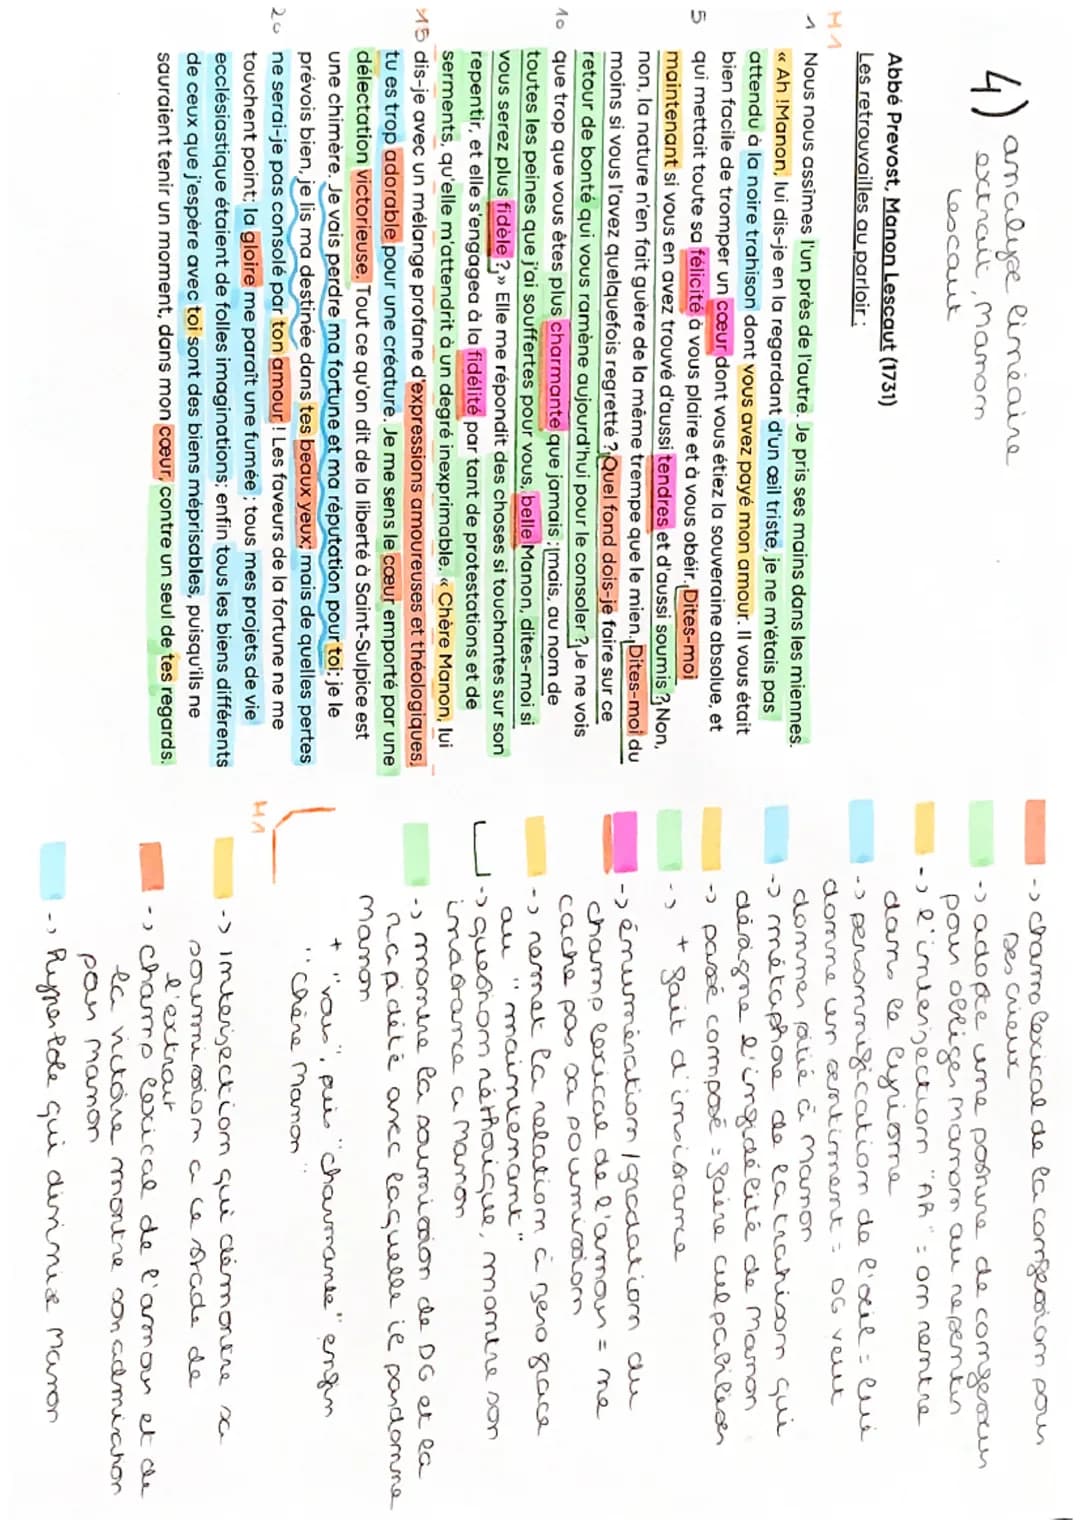 4) analyse linéaire
extrait, Manon
Lescaut
Abbé Prevost, Manon Lescaut (1731)
Les retrouvailles au parloir :
M1
1 Nous nous assîmes l'un près de l'autre. Je pris ses mains dans les miennes.
« Ah !Manon, lui dis-je en la regardant d'un œil triste, je ne m'étais pas
attendu à la noire trahison dont vous avez payé mon amour. Il vous était
bien facile de tromper un cœur dont vous étiez la souveraine absolue, et
5 qui mettait toute sa félicité à vous plaire et à vous obéir. Dites-moi
maintenant si vous en avez trouvé d'aussi tendres et d'aussi soumis ? Non,
non, la nature n'en fait guère de la même trempe que le mien. Dites-moi du
moins si vous l'avez quelquefois regretté ? Quel fond dois-je faire sur ce
retour de bonté qui vous ramène aujourd'hui pour le consoler ? Je ne vois
10 que trop que vous êtes plus charmante que jamais ; mais, au nom de
toutes les peines que j'ai souffertes pour vous, belle Manon, dites-moi si
vous serez plus fidèle ?» Elle me répondit des choses si touchantes sur son
repentir, et elle s'engagea à la fidélité par tant de protestations et de
serments, qu'elle m'attendrit à un degré inexprimable. « Chère Manon, lui
15 dis-je avec un mélange profane d'expressions amoureuses et théologiques,
tu es trop adorable pour une créature. Je me sens le cœur emporté par une
délectation victorieuse. Tout ce qu'on dit de la liberté à Saint-Sulpice est
une chimère. Je vais perdre ma fortune et ma réputation pour toi; je le
prévois bien, je lis ma destinée dans tes beaux yeux; mais de quelles pertes
20 ne serai-je pas consolé par ton amour ! Les faveurs de la fortune ne me
touchent point; la gloire me paraît une fumée ; tous mes projets de vie
ecclésiastique étaient de folles imaginations; enfin tous les biens différents
de ceux que j'espère avec toi sont des biens méprisables, puisqu'ils ne
sauraient tenir un moment, dans mon cœur, contre un seul de tes regards.
-> champ lexical de la confession pour
ses aveux
-> adopte une posture de confesseur
pour obliger Manon au repentir
-> l'interjection "Ah" = on rentre
dans le lyrisme
-> personnification de l'œil = lui
donne un sentiment = DG veut
donner pitié à Manon
-> métaphore de la trahison qui
désigne l'infidélité de Manon
-> passé composé = faire culpabiliser
-> + fait d'insistance
-> énumération / gradation du
champ lexical de l'amour = ne
cache pas sa soumission
-> remet la relation à zéro grâce
au "maintenant"
-> question réthorique, montre son
insistance à Manon
-> montre la soumission de DG et la
rapidité avec laquelle il pardonne
Manon
+ "vous", puis "charmante" enfin
"chère Manon"
M1
-> Interjection qui démontre sa
soumission à ce stade de
l'extrait
-> champ lexical de l'amour et de
la victoire montre son admiration
pour Manon
-> Hyperbole qui divinise Manon